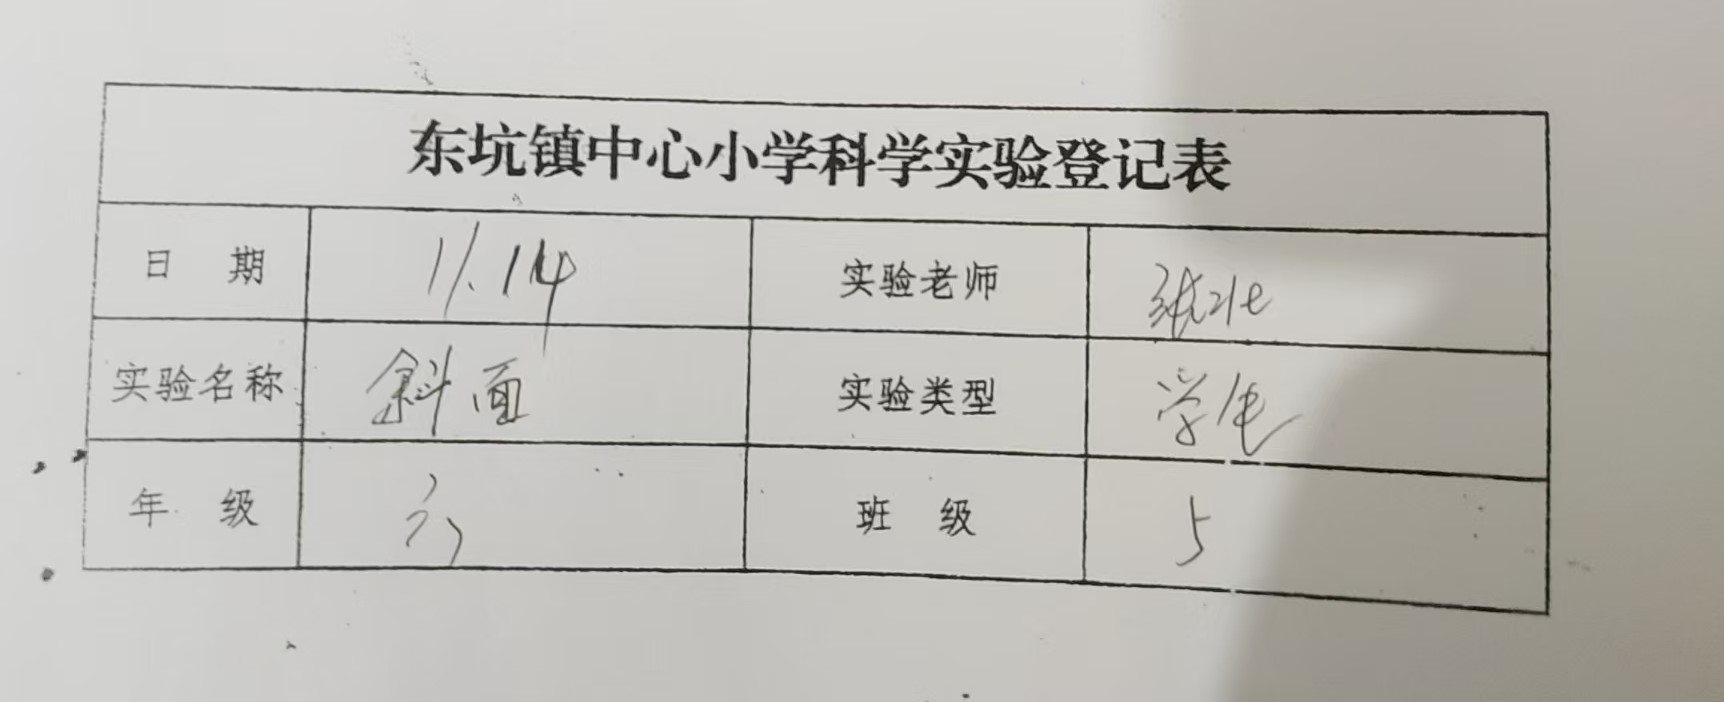 东坑镇中心小学科学实验登记表
日 期 11.14 实验老师
实验名称 斜面 实验类型 学生
年 级 六 班 级 5